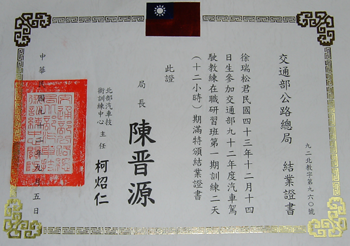 交通部公路總局 結業證書
九二北教字第九六〇號
徐瑞松君民國四十三年十二月十四
日生參加交通部九十二年度汽車駕
駛教練在職研習班第一期訓練二天
（十二小時）期滿特頒結業證書
此證
局長 陳晋源
北部汽車技
術訓練中心 主任 柯炤仁
中華
九十二年九月五日